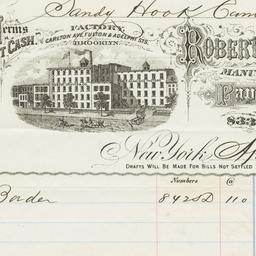 Sandy Hook Cam
Terms
T CASH.
FACTORY,
CARLTON AVE. FULTON & ADELPHI STS.
BROOKLYN.
ROBERT
MANU
833
New York,
DRAFTS WILL BE MADE FOR BILLS NOT SETTLED
Numbers @
Border 842 110